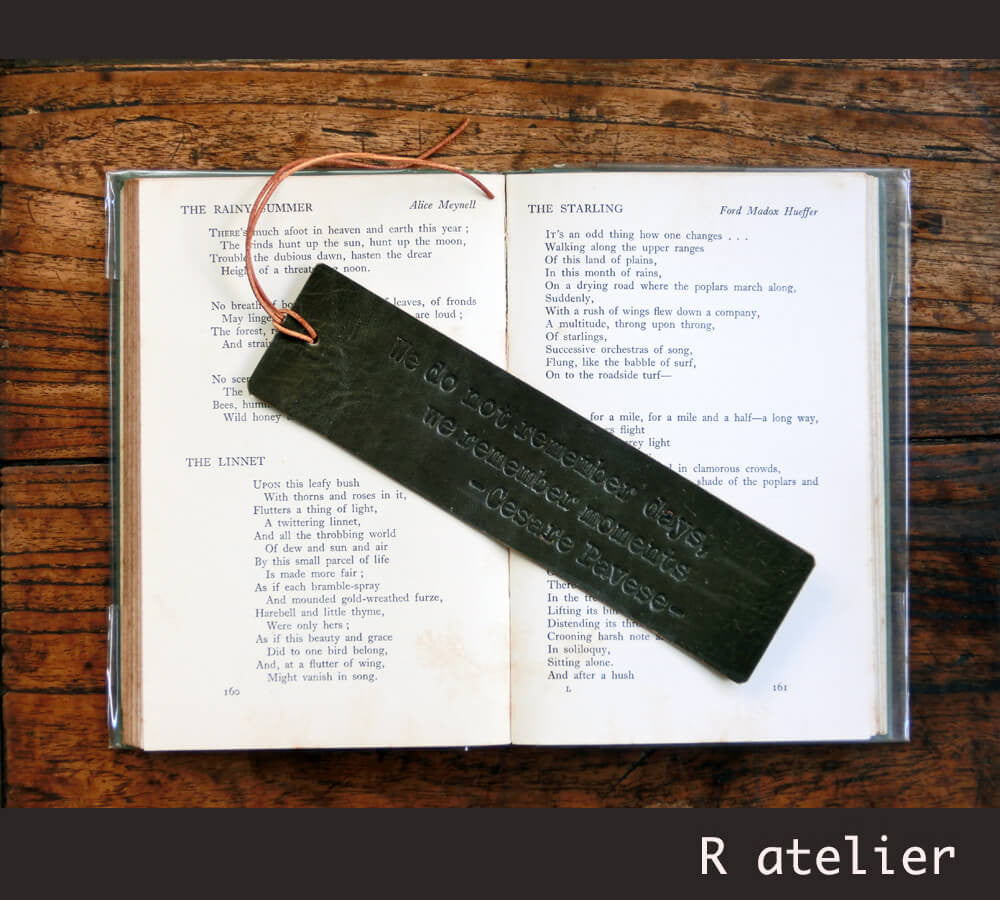 THE RAINY SUMMER Alice Meynell
THERE'S much afoot in heaven and earth this year ;
The winds hunt up the sun, hunt up the moon,
Trouble the dubious dawn, hasten the drear
Height of a threatening noon.
No breath of leaves, of fronds
May linger are loud ;
The forest,
And
No
The
Bees,
Wild honey
THE LINNET
UPON this leafy bush
With thorns and roses in it,
Flutters a thing of light,
A twittering linnet,
And all the throbbing world
Of dew and sun and air
By this small parcel of life
Is made more fair ;
As if each bramble-spray
And mounded gold-wreathed furze,
Harebell and little thyme,
Were only hers ;
As if this beauty and grace
Did to one bird belong,
And, at a flutter of wing,
Might vanish in song.
160
THE STARLING Ford Madox Hueffer
IT'S an odd thing how one changes . . .
Walking along the upper ranges
Of this land of plains,
In this month of rains,
On a drying road where the poplars march along,
Suddenly,
With a rush of wings flew down a company,
A multitude, throng upon throng,
Of starlings,
Successive orchestras of song,
Flung, like the babble of surf,
On to the roadside turf—
for a mile, for a mile and a half—a long way,
flight
light
in clamorous crowds,
shade of the poplars and
In the
Lifting its
Distending its
Crooning harsh note
In soliloquy,
Sitting alone.
And after a hush
L 161
We do not remember days,
we remember moments.
-Cesare Pavese-
R atelier